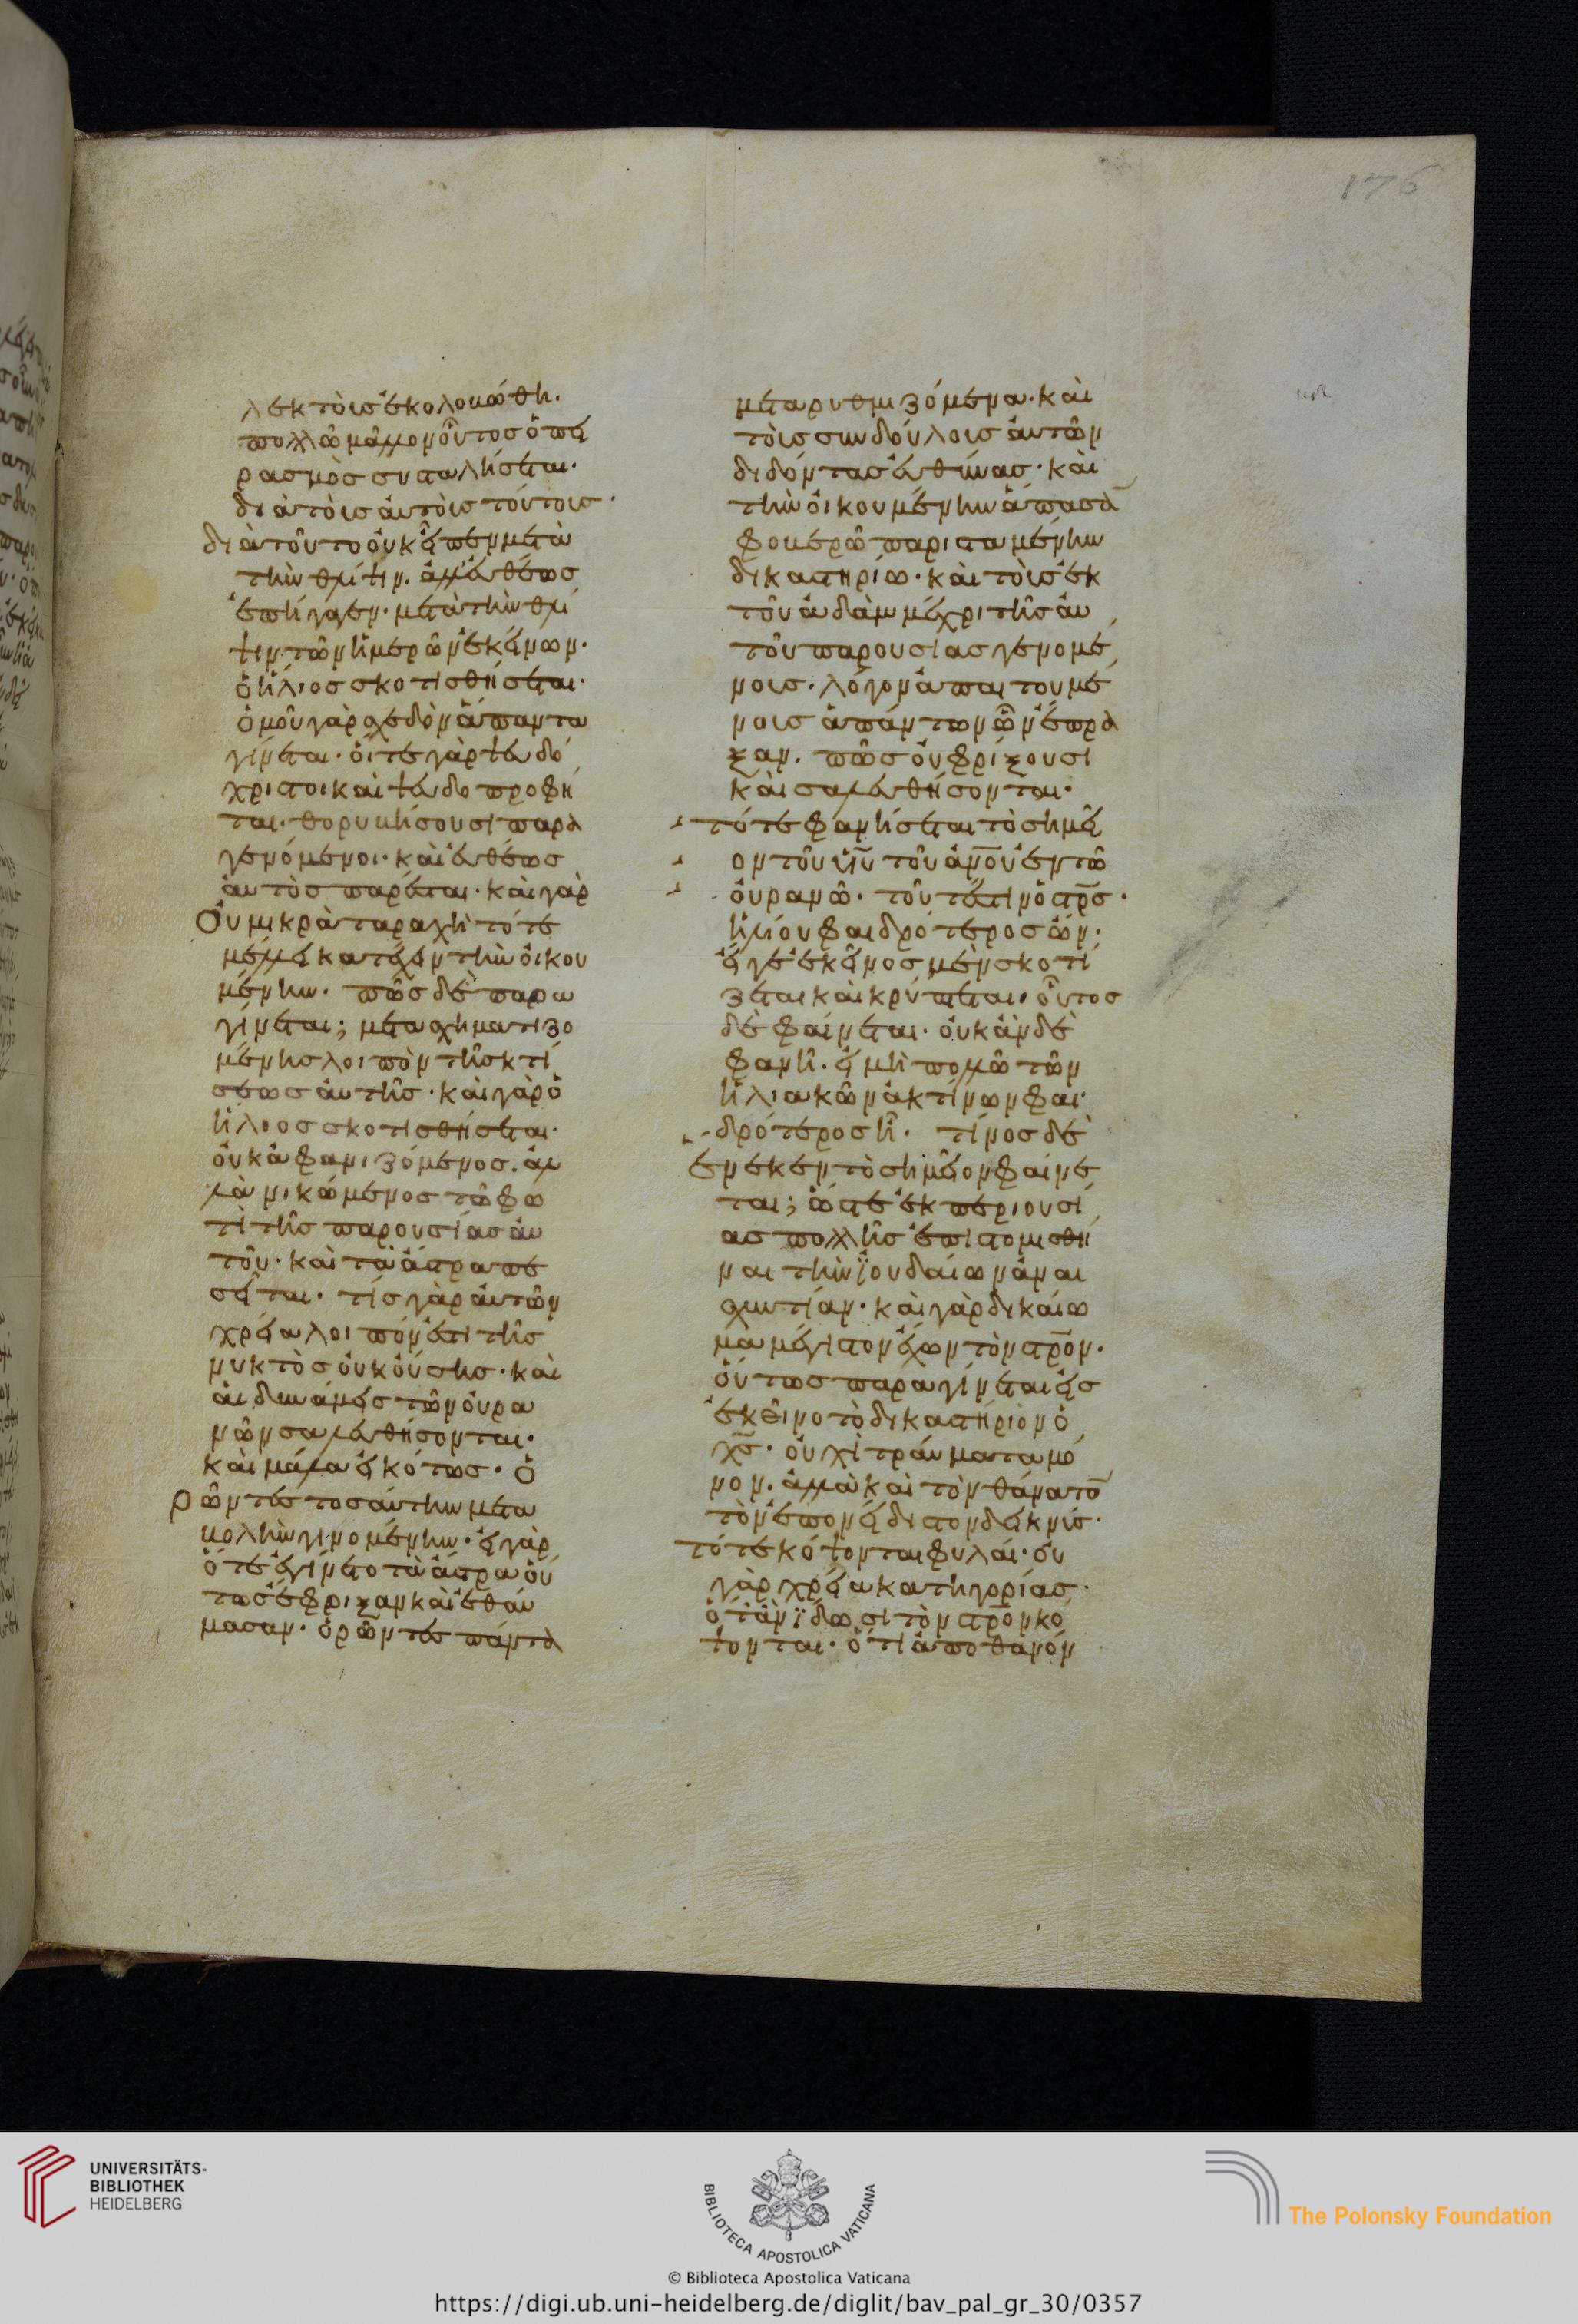 176
λεκτοὺς ἐκολοβώθη.
πολλῶ μᾶλλον οὗτος ὁ πει
ρασμὸς συσταλήσεται.
διὰ τοὺς αὐτοὺς τούτους.
διὰ τοῦτο οὐκ εἶπεν μετὰ
τὴν θλίψιν. ἀλλ' εὐθέως
ἐπήγαγεν. μετὰ τὴν θλί
ψιν τῶν ἡμερῶν ἐκείνων.
ὁ ἥλιος σκοτισθήσεται.
ὁμοῦ γὰρ σχεδὸν ἅπαντα
γίνεται. οἵ τε γὰρ ψευδό
χριστοι καὶ ψευδοπροφῆ
ται. θορυβήσουσι παρα
γενόμενοι. καὶ εὐθέως
αὐτὸς παρέσται. καὶ γὰρ
Οὐ μικρὰ ταραχὴ τότε
μέλλει κατέχειν τὴν οἰκου
μένην. πῶς δὲ παρα
γίνεται; μετασχηματιζο
μένης λοιπὸν τῆς κτί
σεως αὐτῆς. καὶ γὰρ ὁ
ἥλιος σκοτισθήσεται.
οὐκ ἀφανιζόμενος. ἀλ
λὰ νικώμενος τῶ φω
τὶ τῆς παρουσίας αὐ
τοῦ. καὶ τὰ ἄστρα πε
σεῖται. τίς γὰρ αὐτῶν
χρεία λοιπὸν ἔσται τῆς
νυκτὸς οὐκ οὔσης. καὶ
αἱ δυνάμεις τῶν οὐρα
νῶν σαλευθήσονται.
καὶ μάλα εἰκότως. ὁ
ρῶντες τοσαύτην μετα
βολὴν γινομένην. εἰ γὰρ
ὅτε ἐγίνετο τὰ ἄστρα οὕ
τως ἔφριξαν καὶ ἐθαύ
μασαν. ὁρῶντες πάντα
μεταρυθμιζόμενα. καὶ
τοὺς συνδούλους αὐτῶν
διδόντας εὐθύνας. καὶ
τὴν οἰκουμένην ἅπασα
φοβερῶ παρισταμένην
δικαστηρίω. καὶ τοὺς ἐκ
τοῦ ἀδὰμ μέχρι τῆς αὐ
τοῦ παρουσίας γενομέ
νους. λόγον ἀπαιτουμέ
νους ἁπάντων ὧν ἔπρα
ξαν. πῶς οὐ φρίξουσι
καὶ σαλευθήσονται.
τότε φανήσεται τὸ σημεῖ
ον τοῦ υἱῦ τοῦ ἀνοῦ ἐν τῶ
οὐρανῶ. τουτέστιν ὁ στρς.
ἡλίου φαιδρότερος ὤν.
εἴγε ἐκεῖνος μὲν σκοτί
ζεται καὶ κρύπτεται. οὗτος
δὲ φαίνεται. οὐκ ἂν δὲ
φανῆ. εἰ μὴ πολλῶ τῶν
ἡλιακῶν ἀκτίνων φαι
δρότερος ἦ. τίνος δὲ
ἕνεκεν τὸ σημεῖον φαίνε
ται; ὥστε ἐκ περιουσί
ας πολλῆς ἐπιστομισθῆ
ναι τὴν ἰουδαίων ἀναι
σχυντίαν. καὶ γὰρ δικαίω
μα μέγιστον ἔχων τὸν στρον.
οὕτως παραγίνεται εἰς
ἐκεῖνο τὸ δικαστήριον ὁ
χς. οὐχὶ τραύματα μό
νον. ἀλλὰ καὶ τὸν θάνατο
τὸν ἐπονείδιστον δεικνύς.
τότε κόψονται φυλαί. οὐ
γὰρ χρεία κατηγορίας.
ὅταν ἴδωσι τὸν στρον κό
ψονται. ὅτι ἀποθανόν
UNIVERSITÄTS-
BIBLIOTHEK
HEIDELBERG
BIBLIOTECA APOSTOLICA VATICANA
The Polonsky Foundation
© Biblioteca Apostolica Vaticana
https://digi.ub.uni-heidelberg.de/diglit/bav_pal_gr_30/0357